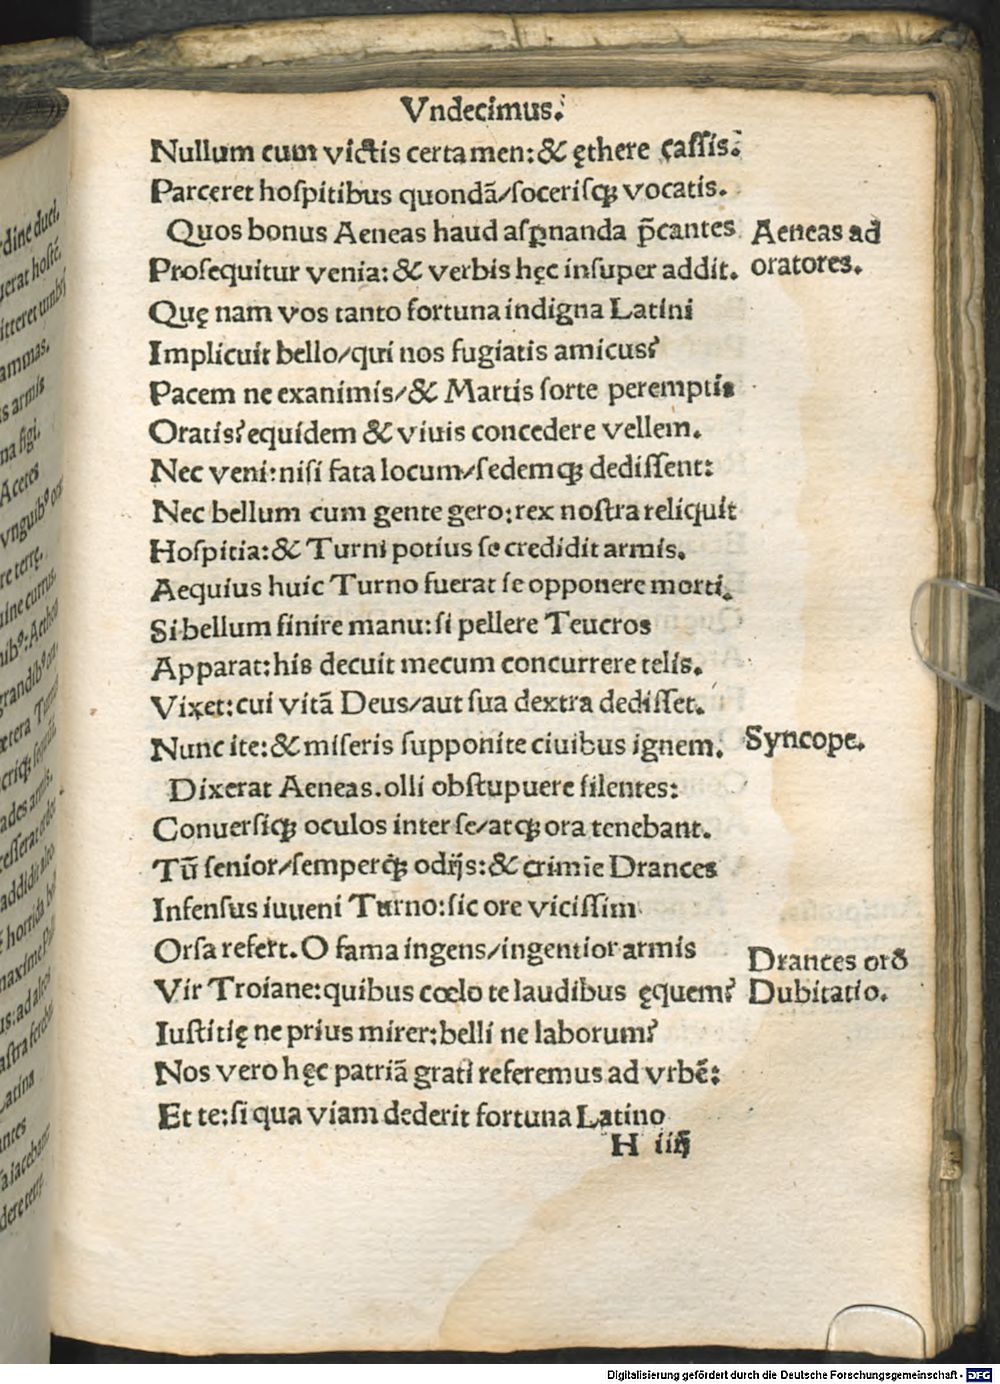 Vndecimus.
Nullum cum victis certamen:& ęthere cassis:
Parceret hospitibus quondā/socerisq; vocatis.
Quos bonus Aeneas haud asꝑnanda p̄cantes
Aeneas ad
Prosequitur venia:& verbis hęc insuper addit.
oratores.
Quę nam vos tanto fortuna indigna Latini
Implicuit bello/qui nos fugiatis amicus?
Pacem ne exanimis/& Martis sorte peremptis
Oratis?equidem & viuis concedere vellem.
Nec veni:nisi fata locum/sedemq; dedissent:
Nec bellum cum gente gero:rex nostra reliquit
Hospitia:& Turni potius se credidit armis.
Aequius huic Turno fuerat se opponere morti.
Si bellum finire manu:si pellere Teucros
Apparat:his decuit mecum concurrere telis.
Vixet:cui vitā Deus/aut sua dextra dedisset.
Nunc ite:& miseris supponite ciuibus ignem.
Syncope.
Dixerat Aeneas.olli obstupuere silentes:
Conuersiq; oculos inter se/atq; ora tenebant.
Tū senior/semperq; odijs:& crimie Drances
Infensus iuueni Turno:sic ore vicissim
Orsa refert.O fama ingens/ingentior armis
Drances orō
Vir Troiane:quibus cœlo te laudibus ęquem?
Dubitatio.
Iustitię ne prius mirer:belli ne laborum?
Nos vero hęc patriā grati referemus ad vrbē:
Et te:si qua viam dederit fortuna Latino
H iiij
rdine duci.
ammas.
s armis
na figi.
Aceres
re terrę.
Latina
Digitalisierung gefördert durch die Deutsche Forschungsgemeinschaft - DFG